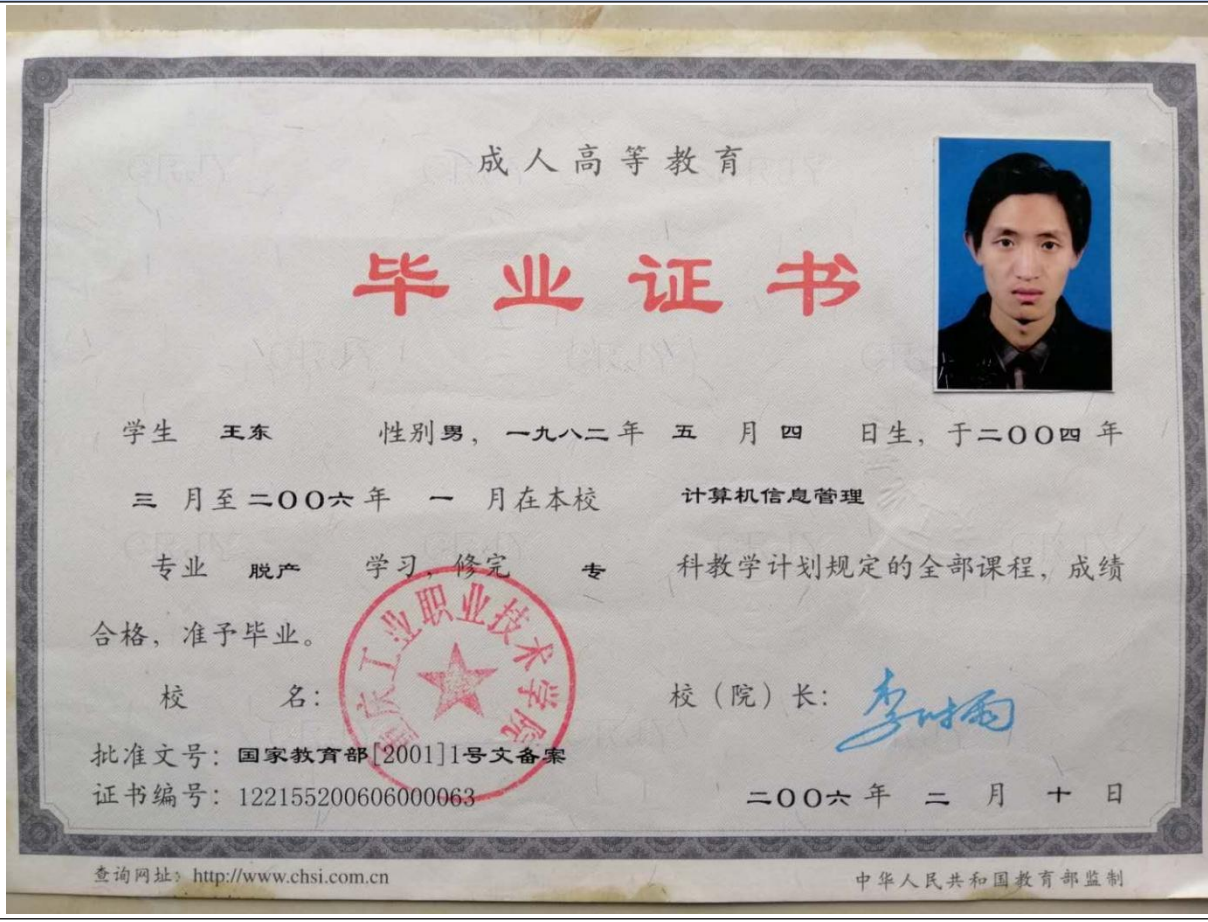 成人高等教育
毕业证书
学生 王东 性别男，一九八二年 五 月 四 日生，于二００四年
三 月至二００六年 一 月在本校 计算机信息管理
专业 脱产 学习，修完 专 科教学计划规定的全部课程，成绩
合格，准予毕业。
重庆工业职业技术学院
校 名： 校（院）长：李时雨
批准文号：国家教育部[2001]1号文备案
证书编号：122155200606000063 二００六年 二 月 十 日
查询网址：http://www.chsi.com.cn 中华人民共和国教育部监制